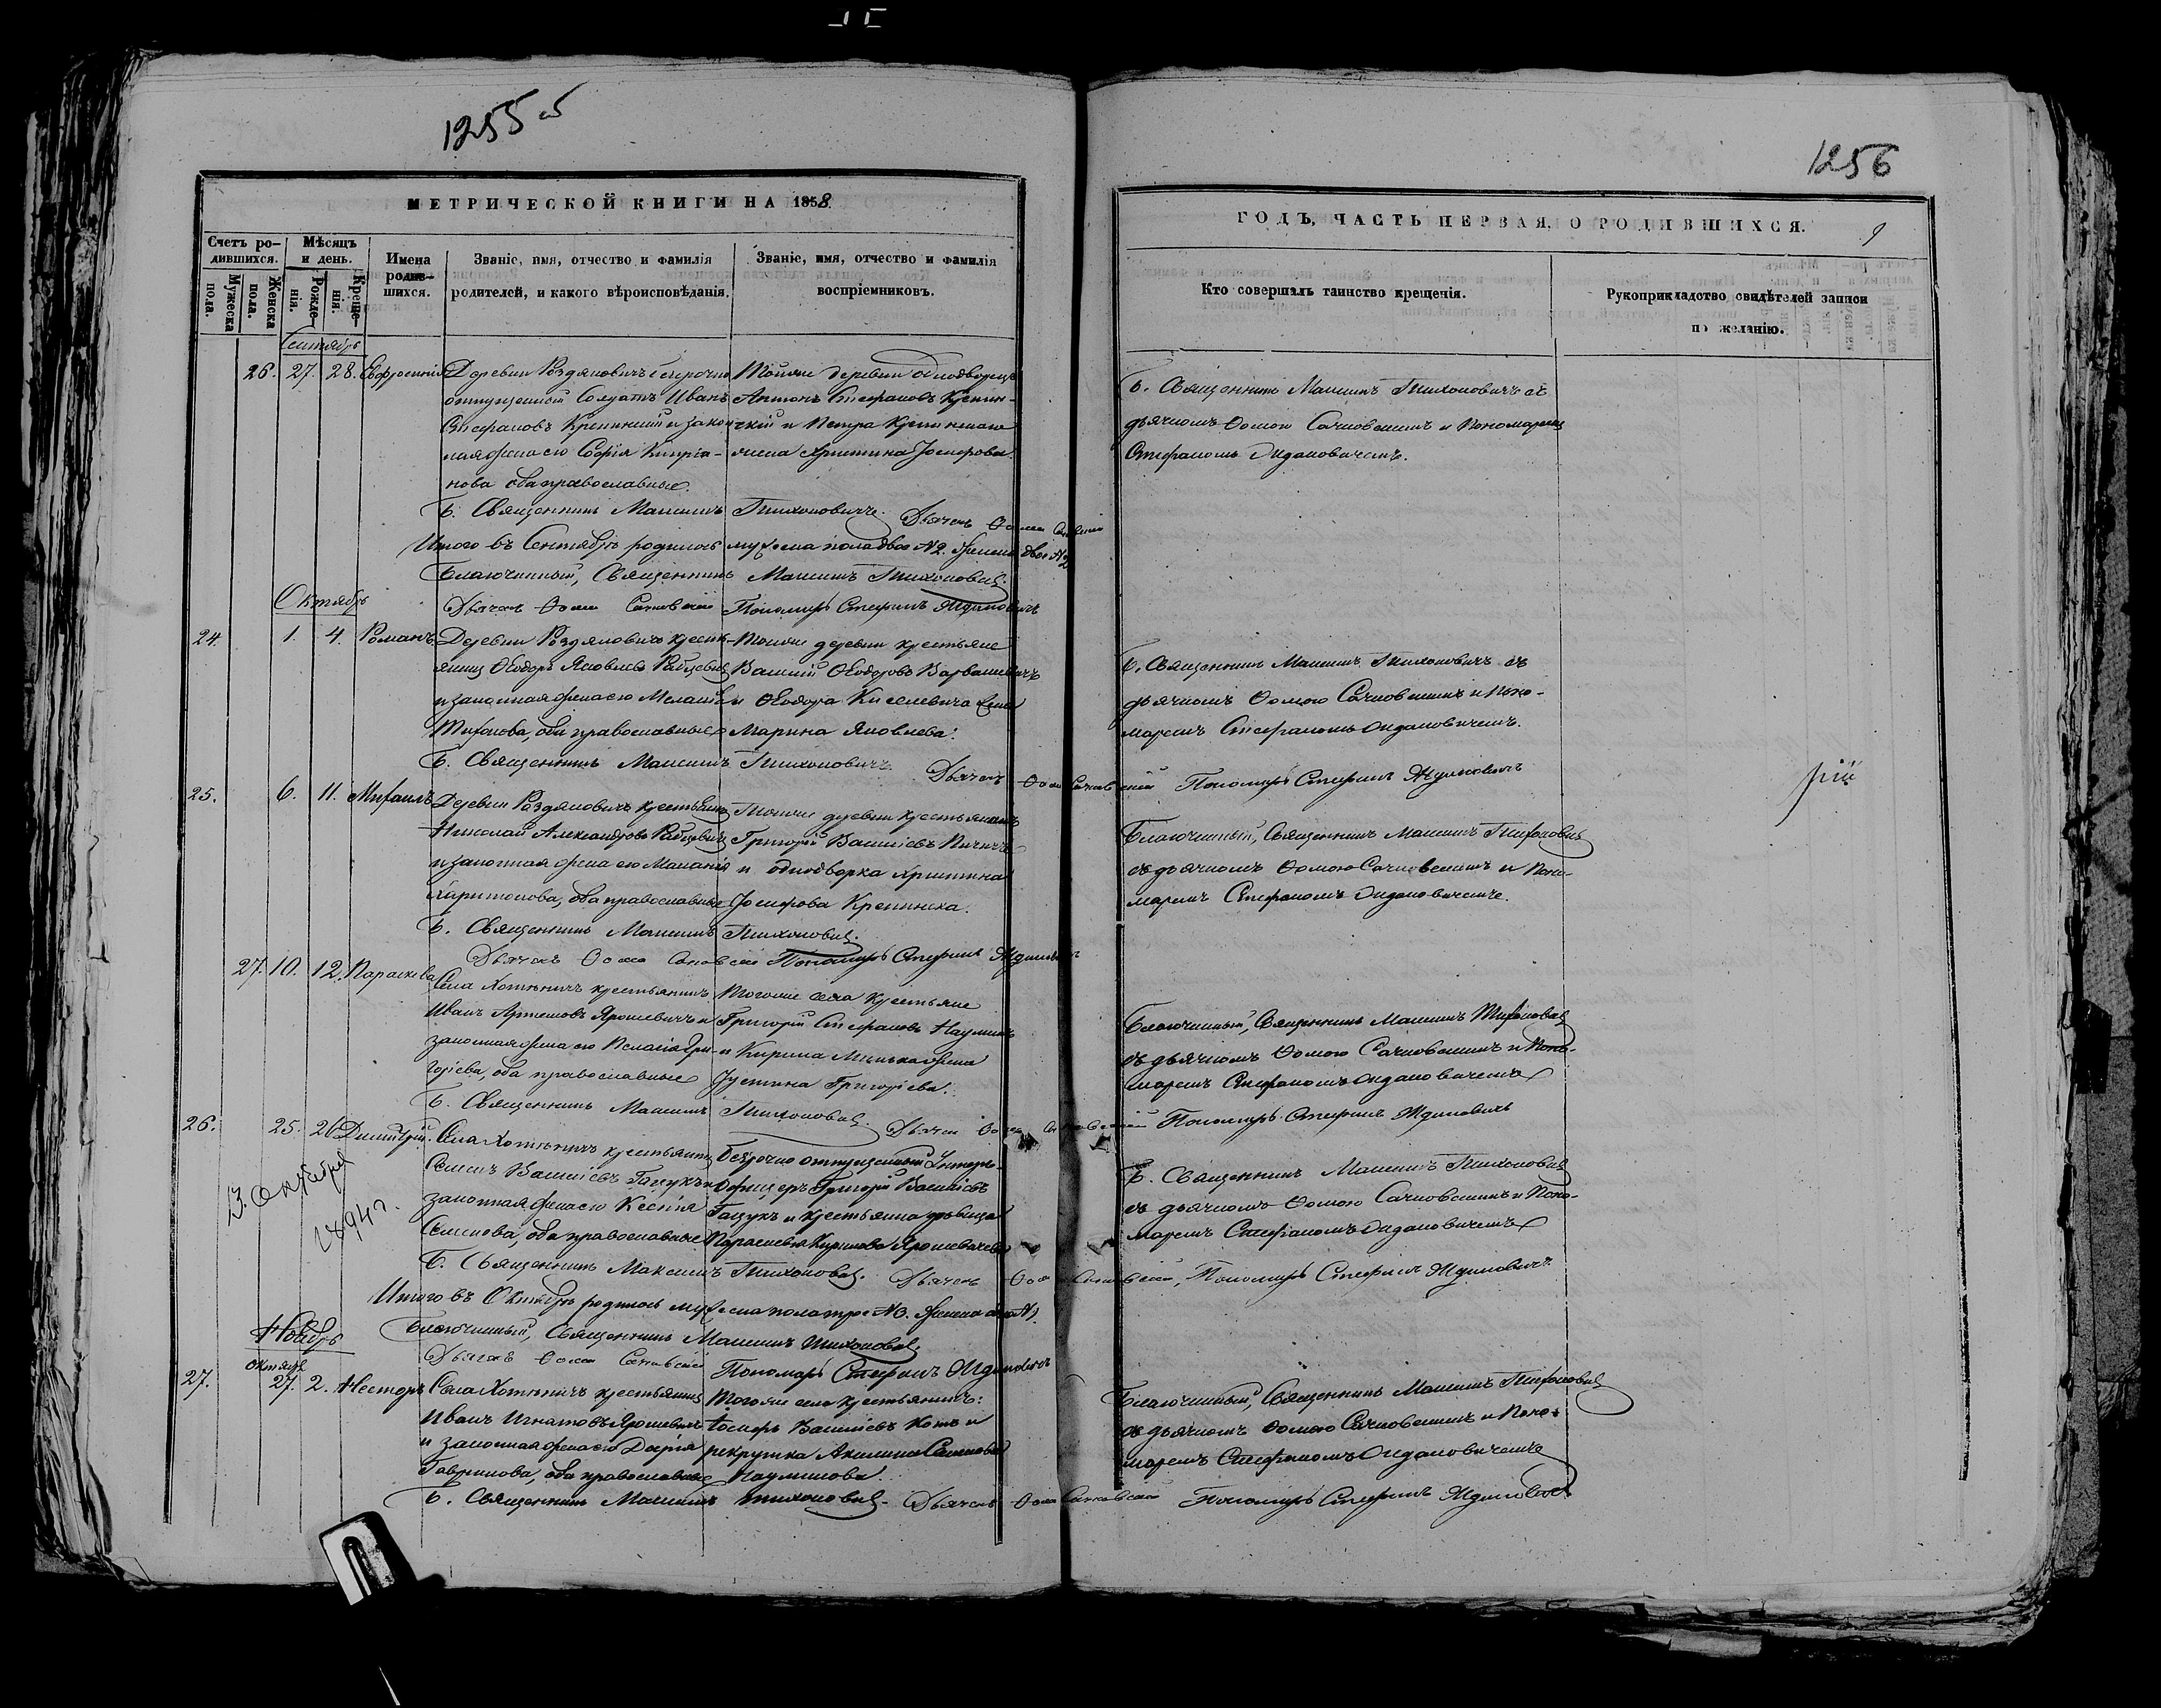 1255 об
1256
МЕТРИЧЕСКОЙ КНИГИ НА 1858
ГОДЪ, ЧАСТЬ ПЕРВАЯ, О РОДИВШИХСЯ.
9
Счетъ ро-
дившихся.
Мужеска пола.
Женска пола.
Мѣсяцъ
и день.
Рожде-
нія.
Креще-
нія.
Имена
родив-
шихся.
Званіе, имя, отчество и фамилія
родителей, и какого вѣроисповѣданія.
Званіе, имя, отчество и фамилія
воспріемниковъ.
Кто совершалъ таинство крещенія.
Рукоприкладство свидѣтелей записи
по желанію.
Сентябрь
26. 27. 28. Евфросинія
Деревни Роздяловичъ безсрочно
отпущенный Солдатъ Иванъ
Стефановъ Крепинскій и закон-
ная жена его Софія Кипріа-
нова оба православные.
Тойже деревни однодворецъ
Антонъ Стефановъ Крепин-
скій и Петра Крепинскаго
жена Христина Іосифова.
Б. Священникъ Максимъ Тихоновичъ съ
дьячкомъ Ѳомою Сачковскимъ и Пономаремъ
Стефаномъ Ждановичемъ.
Б. Священникъ Максимъ Тихоновичъ. Дьячекъ Ѳома
Итого въ Сентябрѣ родилось мужеска пола двое №2. женска двое №2
Благочинный, Священникъ Максимъ Тихоновичъ.
Дьячекъ Ѳома Сачковскій Пономарь Стефанъ Ждановичъ
Октябрь
24. 1. 4. Романъ
Деревни Роздяловичъ кресть-
янинъ Ѳеодоръ Яковлевъ Райцевичъ
и законная жена его Меланія
Тихонова, оба православные
Тойже деревни крестьяне
Василій Ѳеодоровъ Варвашевичъ
и Ѳеодора Киселевича жена
Марина Яковлева.
Б. Священникъ Максимъ Тихоновичъ съ
дьячкомъ Ѳомою Сачковскимъ и Поно-
маремъ Стефаномъ Ждановичемъ.
Б. Священникъ Максимъ Тихоновичъ. Дьячекъ Ѳома Сачковскій Пономарь Стефанъ Ждановичъ
25. 6. 11. Михаилъ
Деревни Роздяловичъ крестьянинъ
Николай Александровъ Райцевичъ
и законная жена его Меланія
Харитонова, оба православные
Тойже деревни крестьянинъ
Григорій Василіевъ
и однодворка Христина
Іосифова Крепинска.
Благочинный, Священникъ Максимъ Тихоновичъ
съ дьячкомъ Ѳомою Сачковскимъ и Поно-
маремъ Стефаномъ Ждановичемъ.
Б. Священникъ Максимъ Тихоновичъ.
Дьячекъ Ѳома Сачковскій Пономарь Стефанъ Ждановичъ
27. 10. 12. Параскева
Села Хотыничъ крестьянинъ
Иванъ Артемовъ Ярошевичъ и
законная жена его Пелагія Гри-
горіева, оба православные
Тогоже села крестьяне
Григорій Стефановъ Наумчикъ
и Кирила жена
Іустина Григоріева.
Благочинный, Священникъ Максимъ Тихоновичъ
съ дьячкомъ Ѳомою Сачковскимъ и Поно-
маремъ Стефаномъ Ждановичемъ
Б. Священникъ Максимъ Тихоновичъ. Дьячекъ Ѳома Сачковскій Пономарь Стефанъ Ждановичъ
26. 25. 26 Димитрій.
13. Октября
1894 г.
Села Хотыничъ крестьянинъ
Семенъ Василіевъ Гацукъ и
законная жена его Ксенія
Семенова, оба православные
Безсрочно отпущенный Унтеръ-
Офицеръ Григорій Василіевъ
Гацукъ и крестьянка дѣвица
Параскева Кирилова Ярошевичева
Б. Священникъ Максимъ Тихоновичъ
съ дьячкомъ Ѳомою Сачковскимъ и Поно-
маремъ Стефаномъ Ждановичемъ
Б. Священникъ Максимъ Тихоновичъ. Дьячекъ Ѳома Сачковскій, Пономарь Стефанъ Ждановичъ
Итого въ Октябрѣ родилось мужеска пола трое №3. женска одна №1.
Благочинный, Священникъ Максимъ Тихоновичъ
Дьячекъ Ѳома Сачковскій Пономарь Стефанъ Ждановичъ
Ноябрь
Октября
27. 27. 2. Несторъ
Села Хотыничъ крестьянинъ
Иванъ Игнатовъ Ярошевичъ
и законная жена его Дарія
Гаврилова, оба православные
Тогоже села крестьянинъ:
Іосифъ Василіевъ Котъ и
рекрутка Акилина Семенова
Наумчикова.
Благочинный, Священникъ Максимъ Тихоновичъ
съ дьячкомъ Ѳомою Сачковскимъ и Поно-
маремъ Стефаномъ Ждановичемъ
Б. Священникъ Максимъ Тихоновичъ. Дьячекъ Ѳома Сачковскій Пономарь Стефанъ Ждановичъ